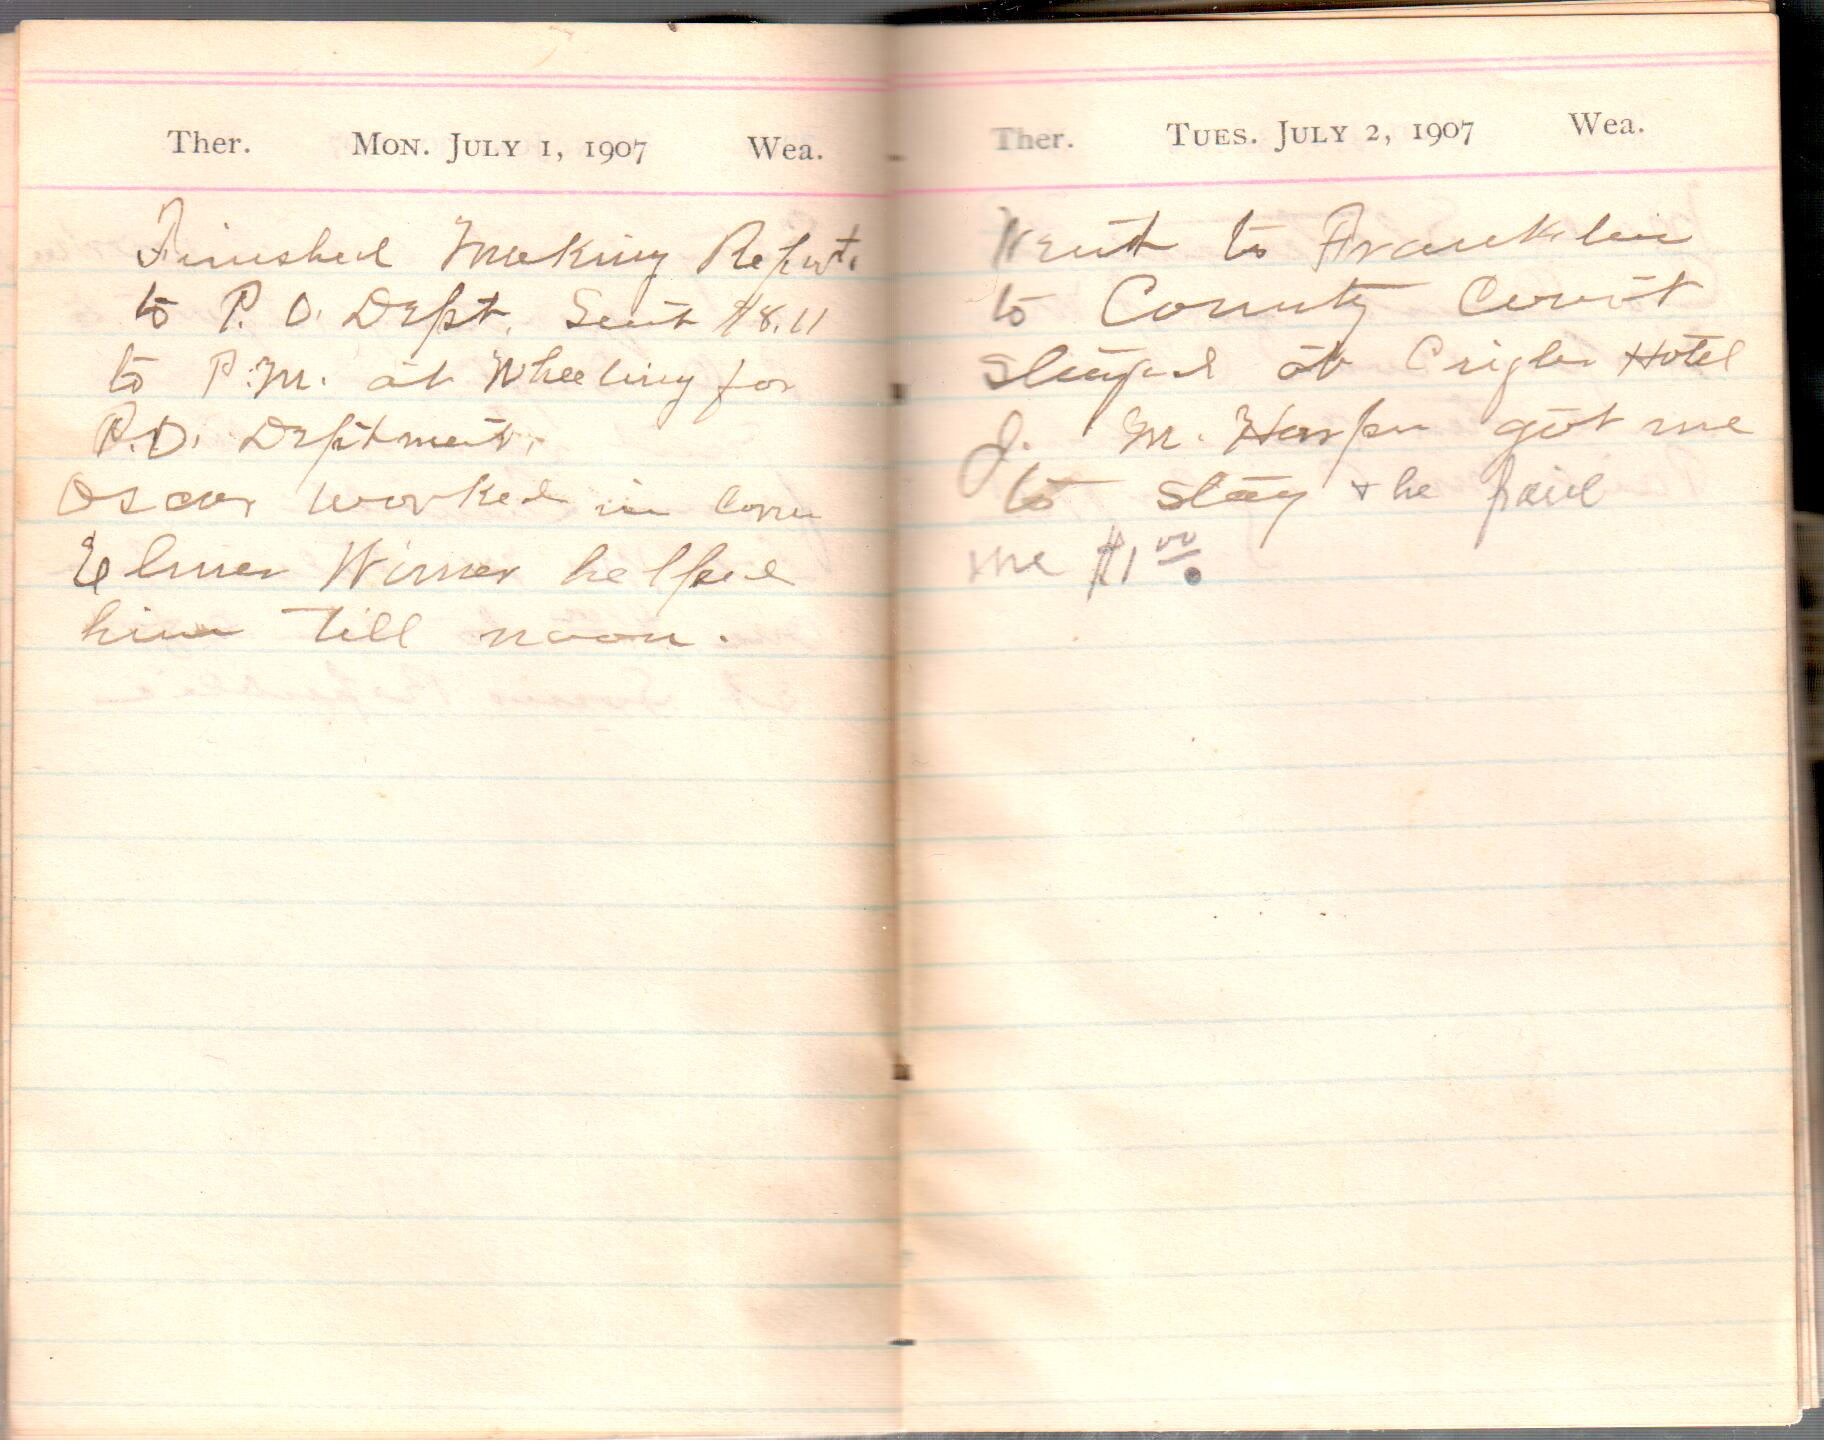 Ther. MON. JULY 1, 1907 Wea.
Finished Making Report.
to P. O. Dept. Sent $8.11
to P.M. at Wheeling for
P.O. Deptment.
Oscar worked in Corn
Elmer Wimer helped
him till noon.
Ther. TUES. JULY 2, 1907 Wea.
Went to Franklin
to County Court
stayed at Crigler Hotel
J. M. Harper got me
to stay + he paid
me $1 00.